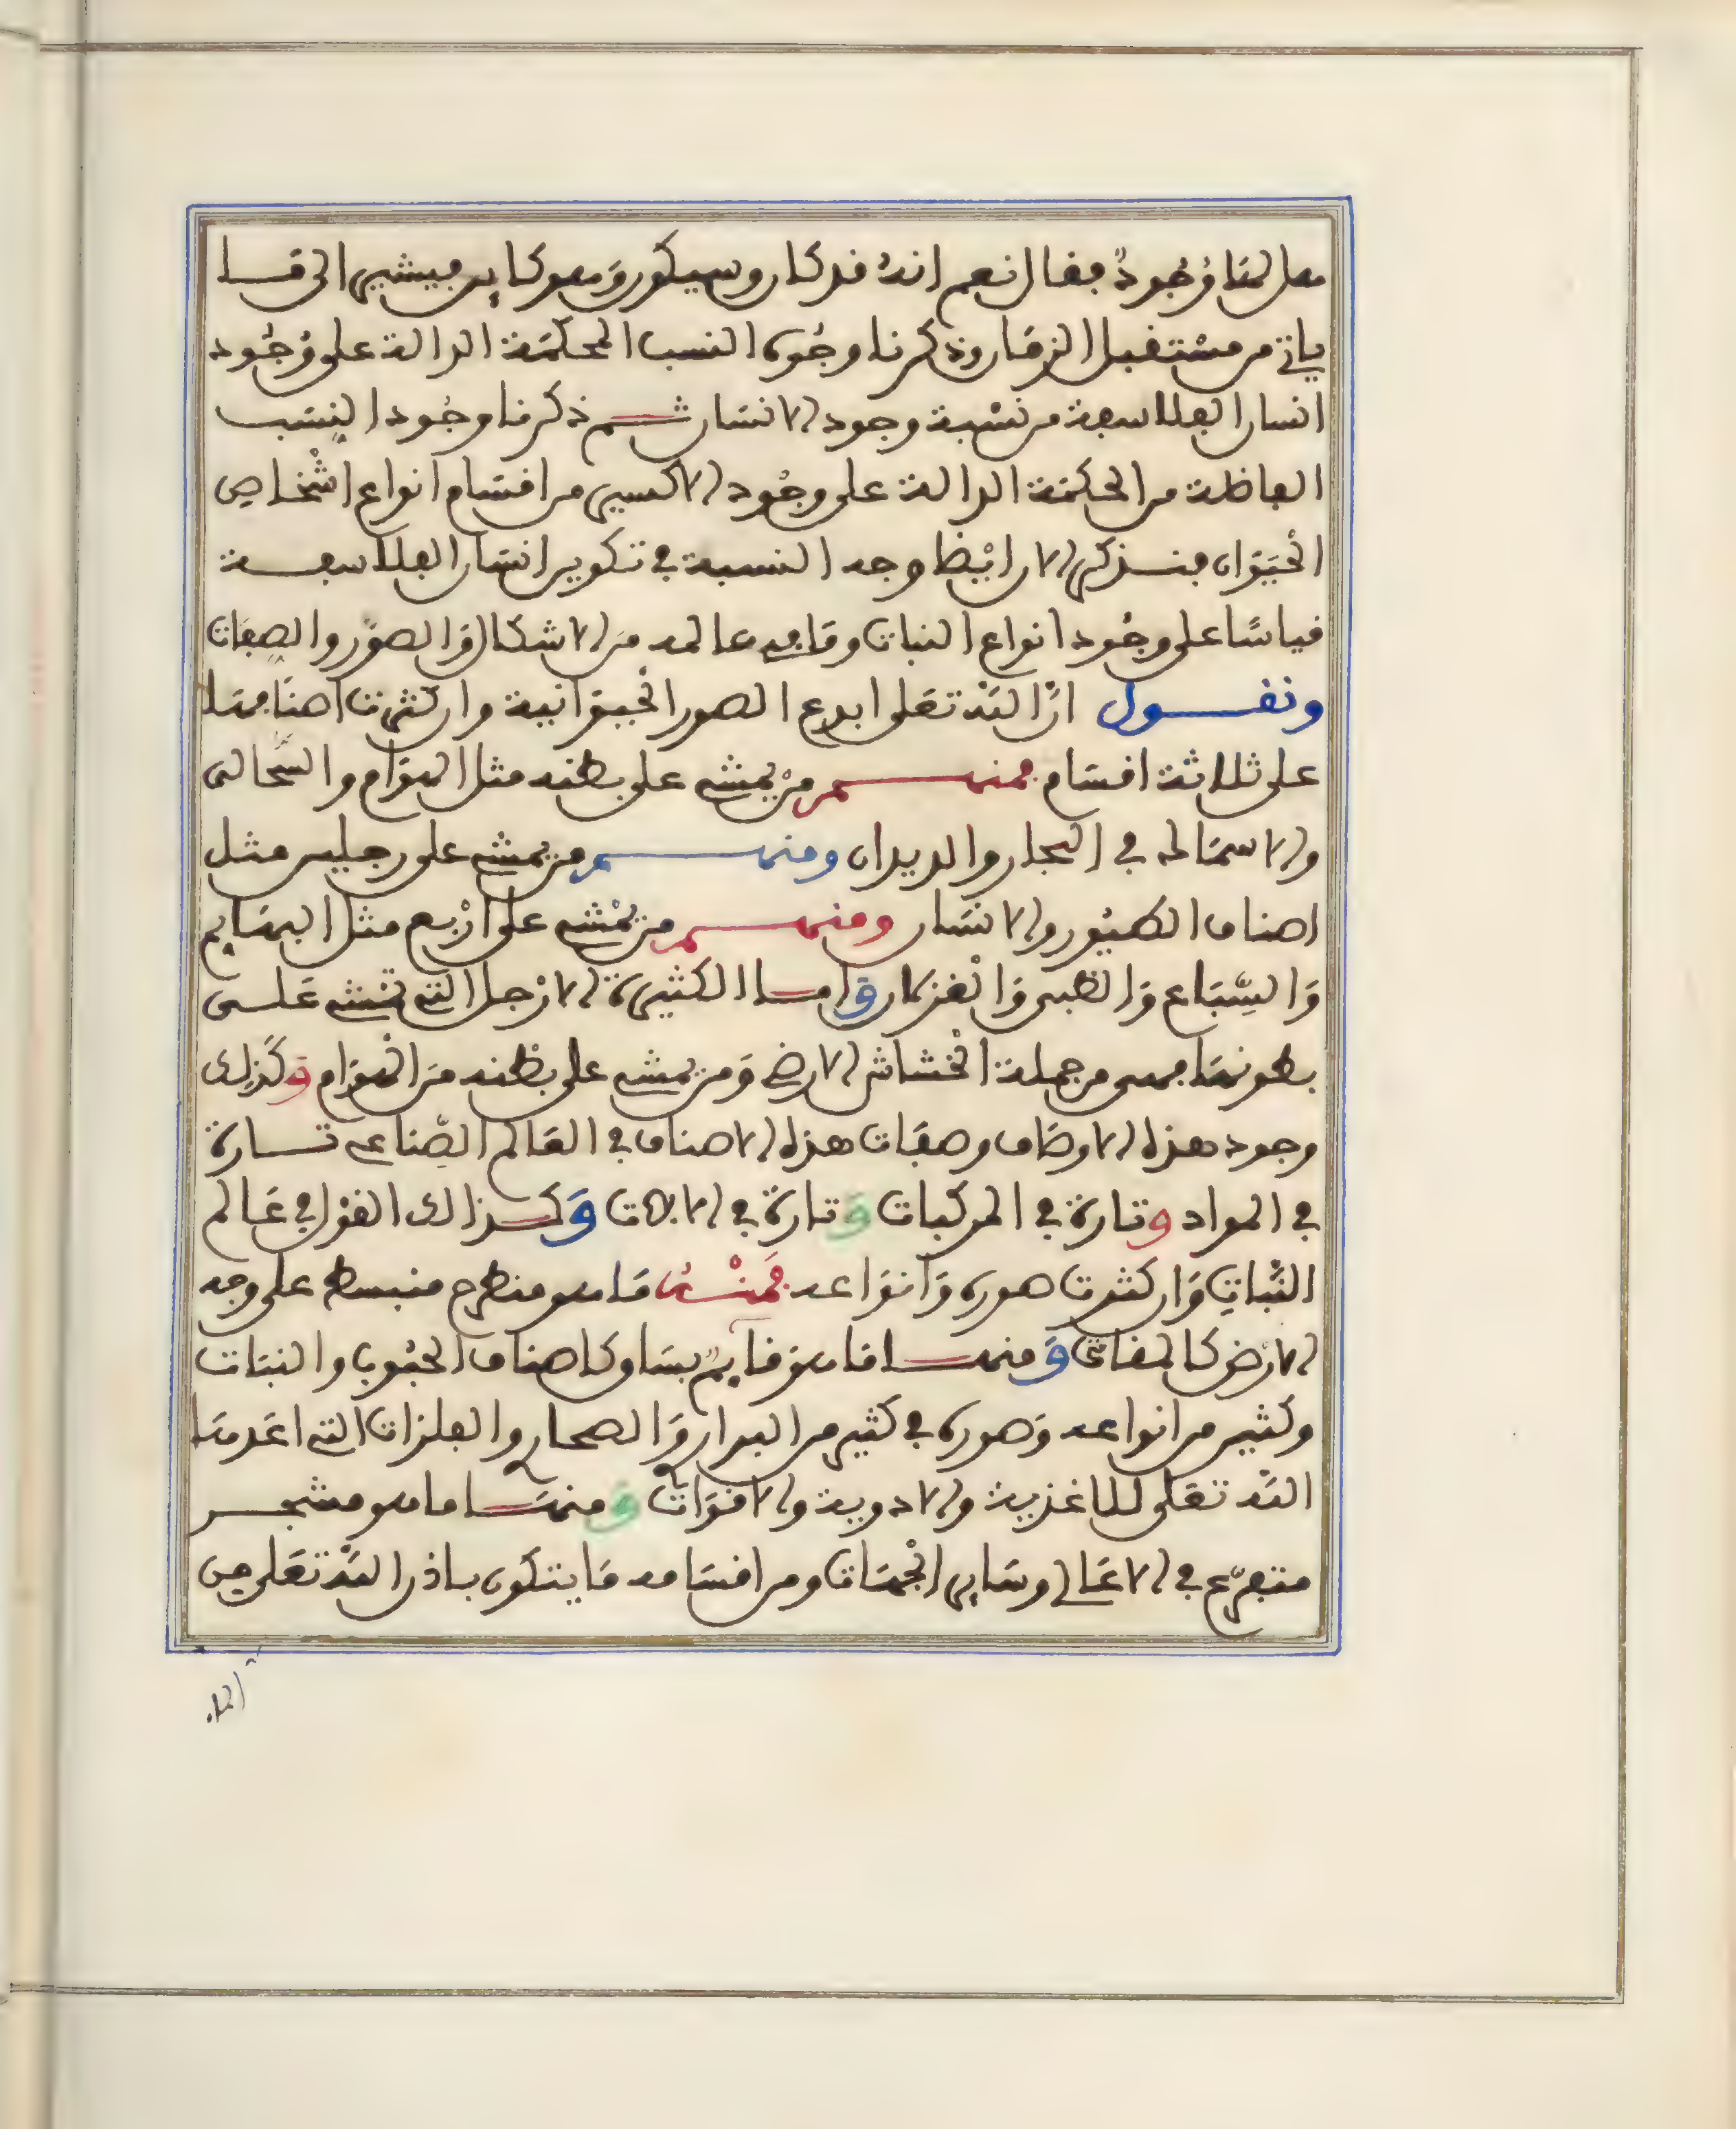 هل لها وجود فقال نعم انه قد كان وسيكون وهو كاين فيشير الى ما
ياتي من مستقبل الزمان وذكرنا وجوه النسب المحكمة الدالة على وجود
انسان الفلاسفة من نسبة وجود الانسان ثم ذكرنا وجود النسب
الفاضلة من الحكمة الدالة على وجود الاكسير من اقسام انواع اشخاص
الحيوان فنذكر الان ايضا وجه النسبة في تكوين انسان الفلاسفة
قياسا على وجود انواع النبات وما فيه عالمه من الاشكال والصور والصفات
ونقول ان الله تعلى ابدع الصور الحيوانية وان كثرت اصنافها
على ثلاثة اقسام فمنهم من يمشي على بطنه مثل الهوام والسحالى
والاسماك في البحار والديدان ومنهم من يمشي على رجلين مثل
اصناف الطيور والانسان ومنهم من يمشي على اربع مثل البهايم
والسباع والظبى والغزلان واما الكثيرة الارجل التي تمشي على
بطونها فهى من جملة الخشاش الارضي ومن يمشي على بطنه من الهوام وكذلك
وجود هذه الاوصاف وصفات هذه الاصناف في العالم الصناعي تارة
في المواد وتارة في المركبات وتارة في الالات وكذالك القول في عالم
النبات وان كثرت صوره وانواعه فمنه ما هو منطرح منبسط على وجه
الارض كالمقاثي ومنها ما هو قايم بساق كاصناف الحبوب والنبات
وكثير من انواعه وصوره في كثير من البراري والصحاري والفلزات التي اعدها
الله تعلى للاغذية والادوية والاقوات ومنها ما هو مشجر
متفرع في الاعالي وساير الجهات ومن اقسامه ما يتكون باذن الله تعلى من